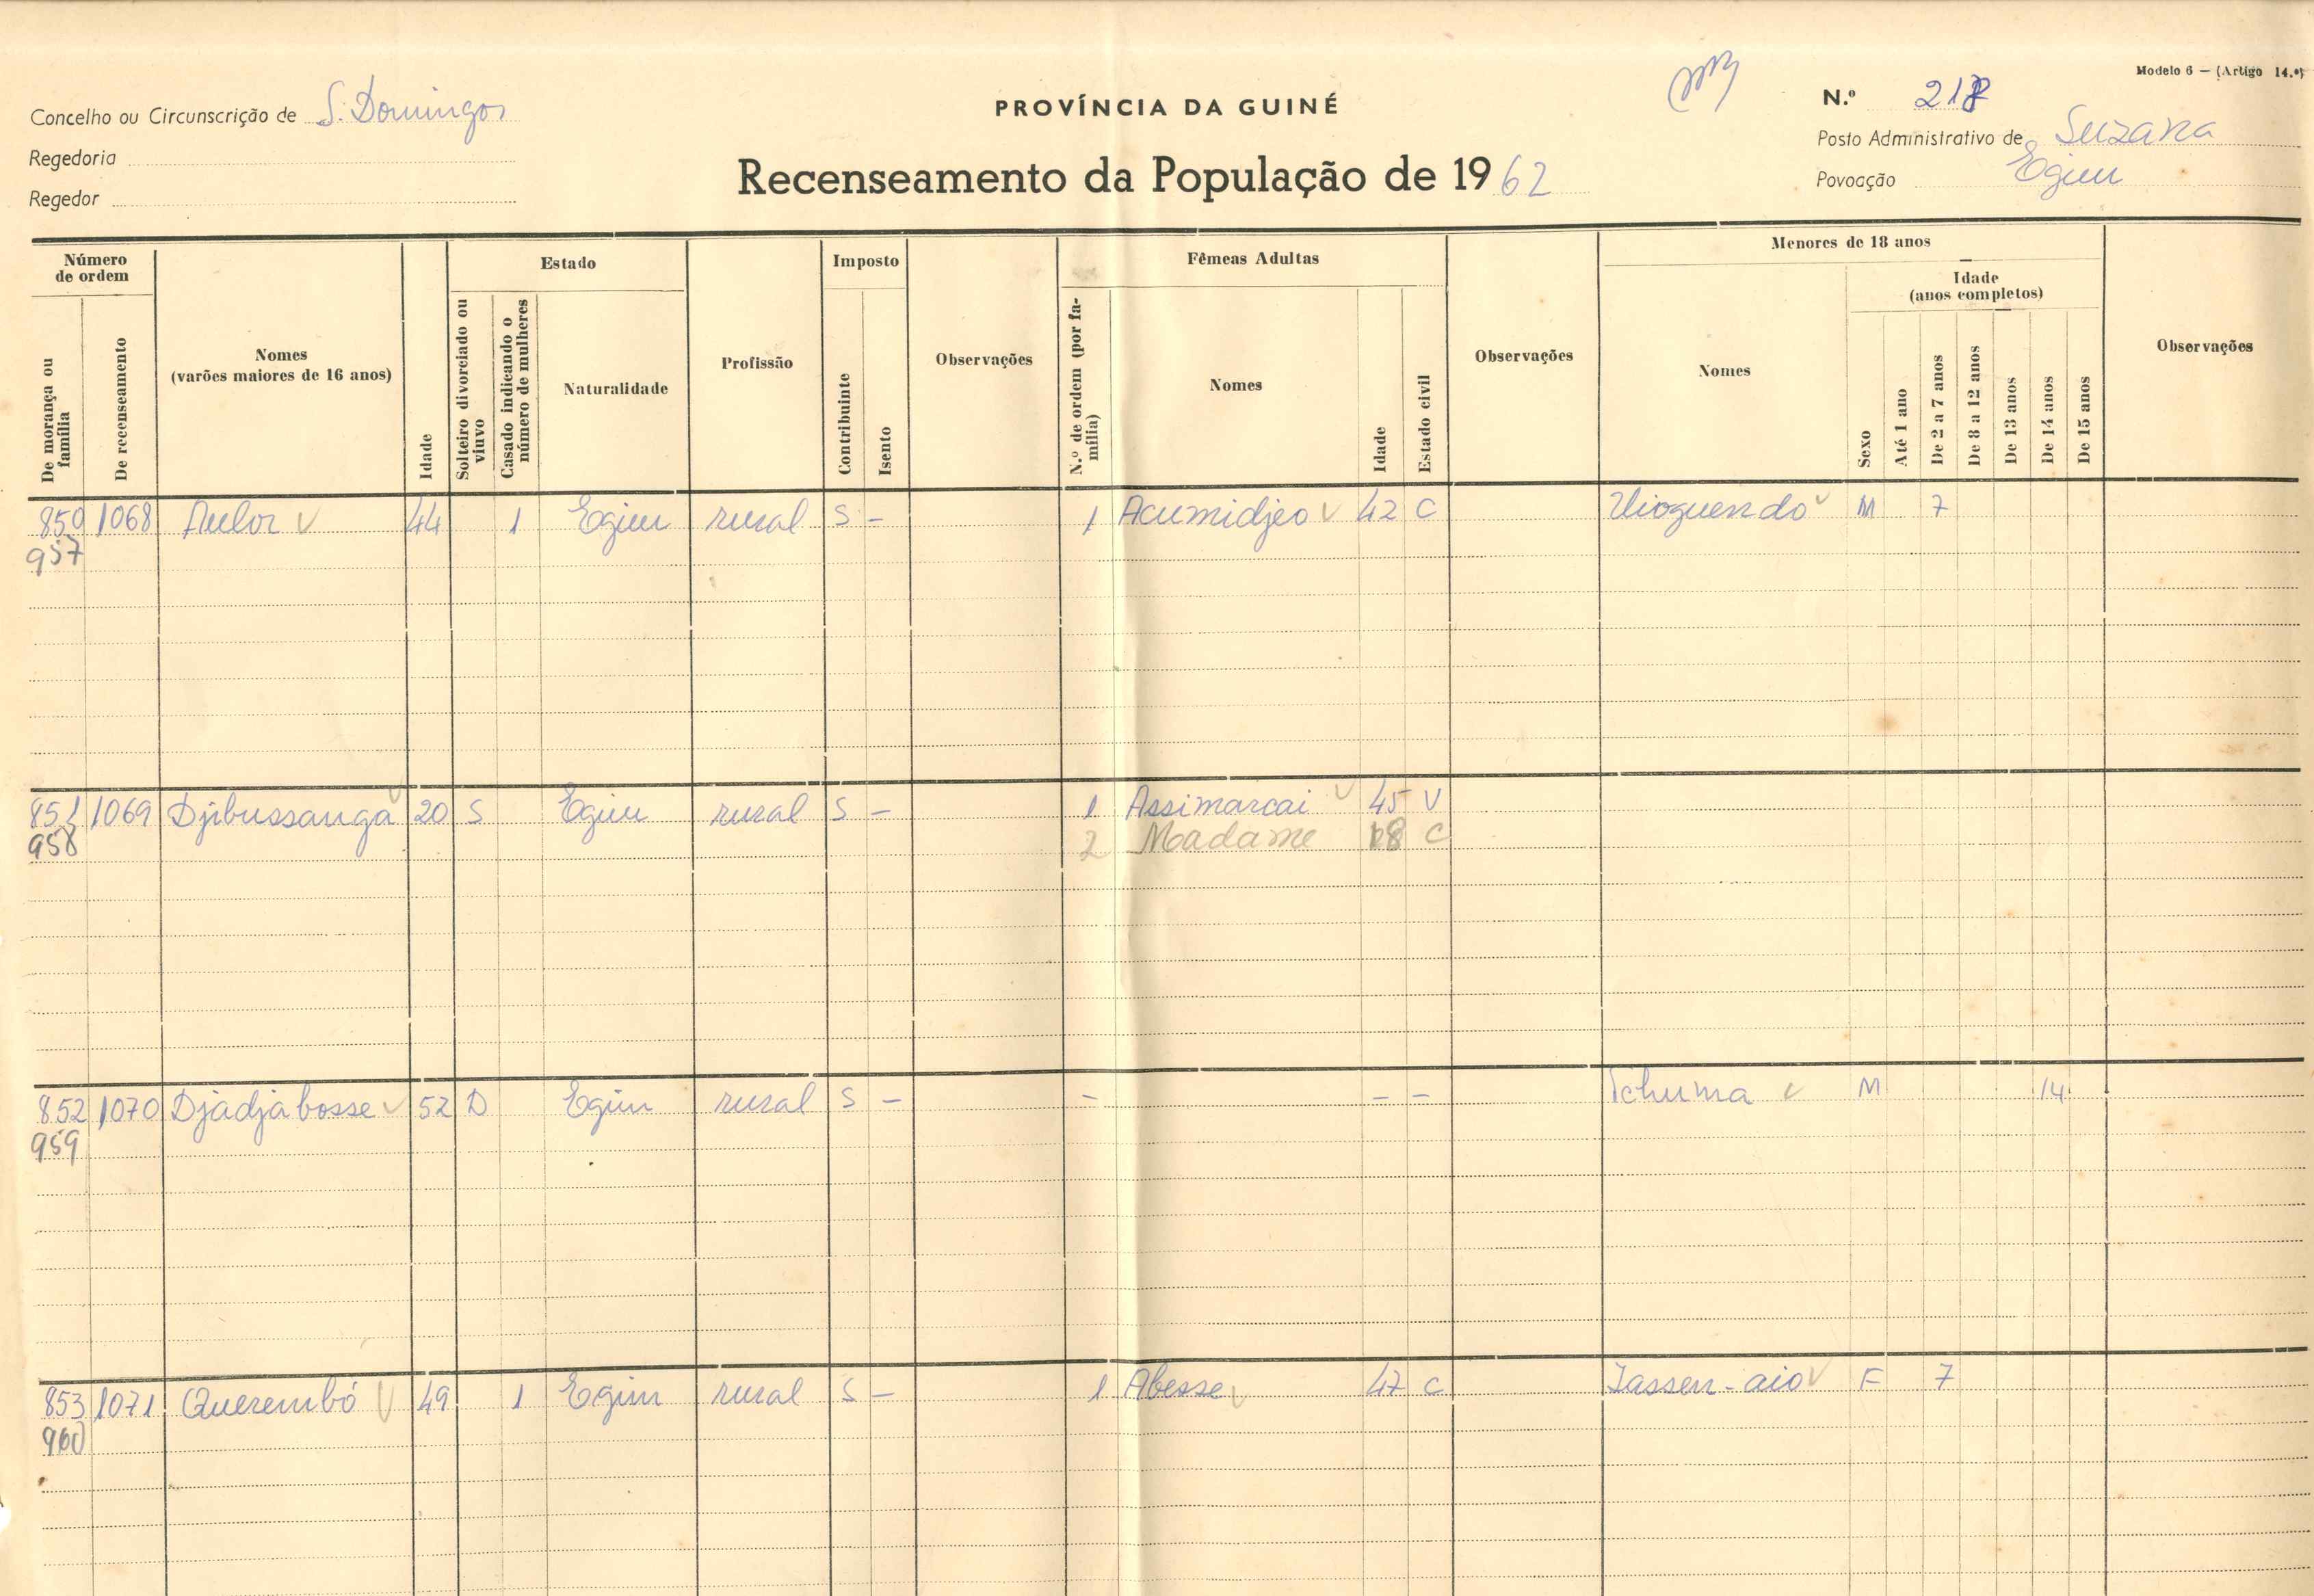 Modelo 6 — (Artigo 14.º)
Concelho ou Circunscrição de S. Domingos
PROVÍNCIA DA GUINÉ
N.º
Regedoria
Posto Administrativo de Suzana
Recenseamento da População de 1962
Regedor
Povoação Egim
Número de ordem
De morança ou família
De recenseamento
Nomes
(varões maiores de 16 anos)
Idade
Estado
Solteiro divorciado ou viuvo
Casado indicando o número de mulheres
Naturalidade
Profissão
Imposto
Contribuinte
Isento
Observações
Fêmeas Adultas
N.º de ordem (por família)
Nomes
Idade
Estado civil
Observações
Menores de 18 anos
Nomes
Sexo
Idade
(anos completos)
Até 1 ano
De 2 a 7 anos
De 8 a 12 anos
De 13 anos
De 14 anos
De 15 anos
Observações
850 1068 44 1 Egim rural S - 1 Acumidjeo 42 C M 7
957
851 1069 Djibussanga 20 S Egim rural S - 1 Assimarcai 45 V
958 2 Madame 18 C
852 1070 Djadjabosse 52 D Egim rural S - - - - Tchuma M 14
959
853 1071 Querembó 49 1 Egim rural S - 1 Abesse 47 C Jassen-aio F 7
960